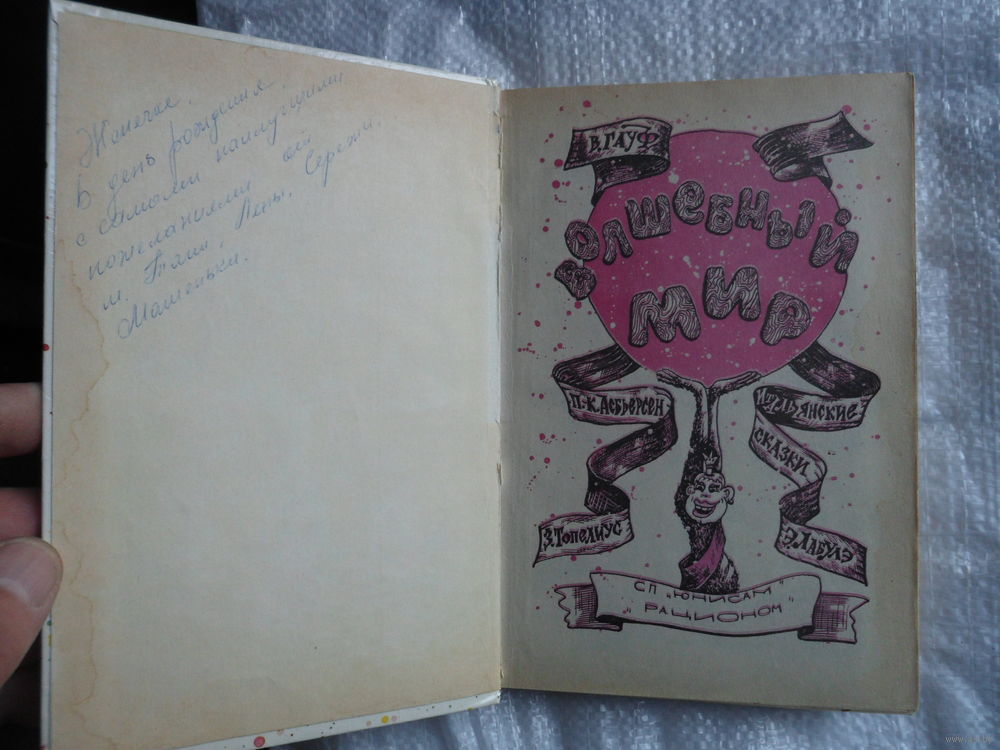 Жанечке,
В день рождения
с самыми наилучшими
пожеланиями от
м. Тани, Лены, Сережи,
Машеньки.
В. ГАУФ
ВОЛШЕБНЫЙ
МИР
П.-К. АСБЬЕРСЕН
ИТАЛЬЯНСКИЕ
СКАЗКИ
З. ТОПЕЛИУС
Э. ЛАБУЛЭ
СП „ЮНИСАМ"
„РАЦИОНОМ"